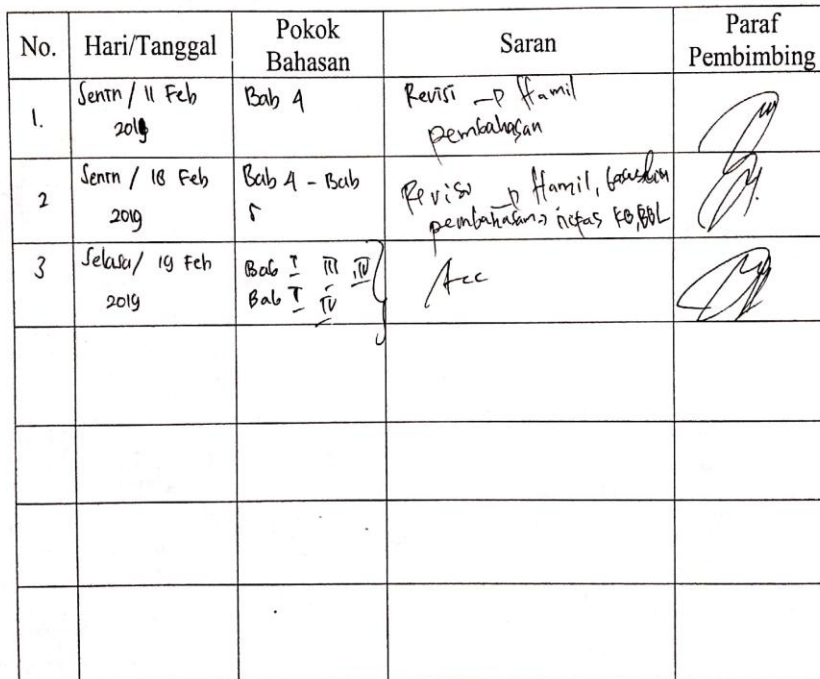 No. Hari/Tanggal Pokok Bahasan Saran Paraf Pembimbing
1. Senin / 11 Feb 2019 Bab 4 Revisi → Hamil pembahasan
2 Senin / 18 Feb 2019 Bab 4 - Bab 5 Revisi → Hamil, pembahasan, nifas KB, BBL
3 Selasa / 19 Feb 2019 Bab I III Bab IV Acc